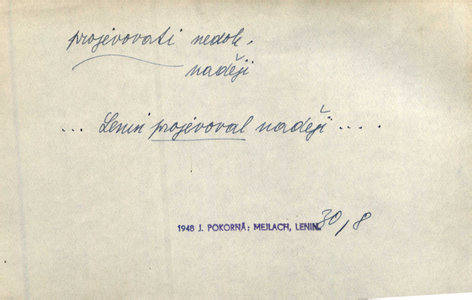 projevovati nedok.
naději
... Lenin projevoval naději ....
1948 J. POKORNÁ: MEJLACH, LENIN. 30,8